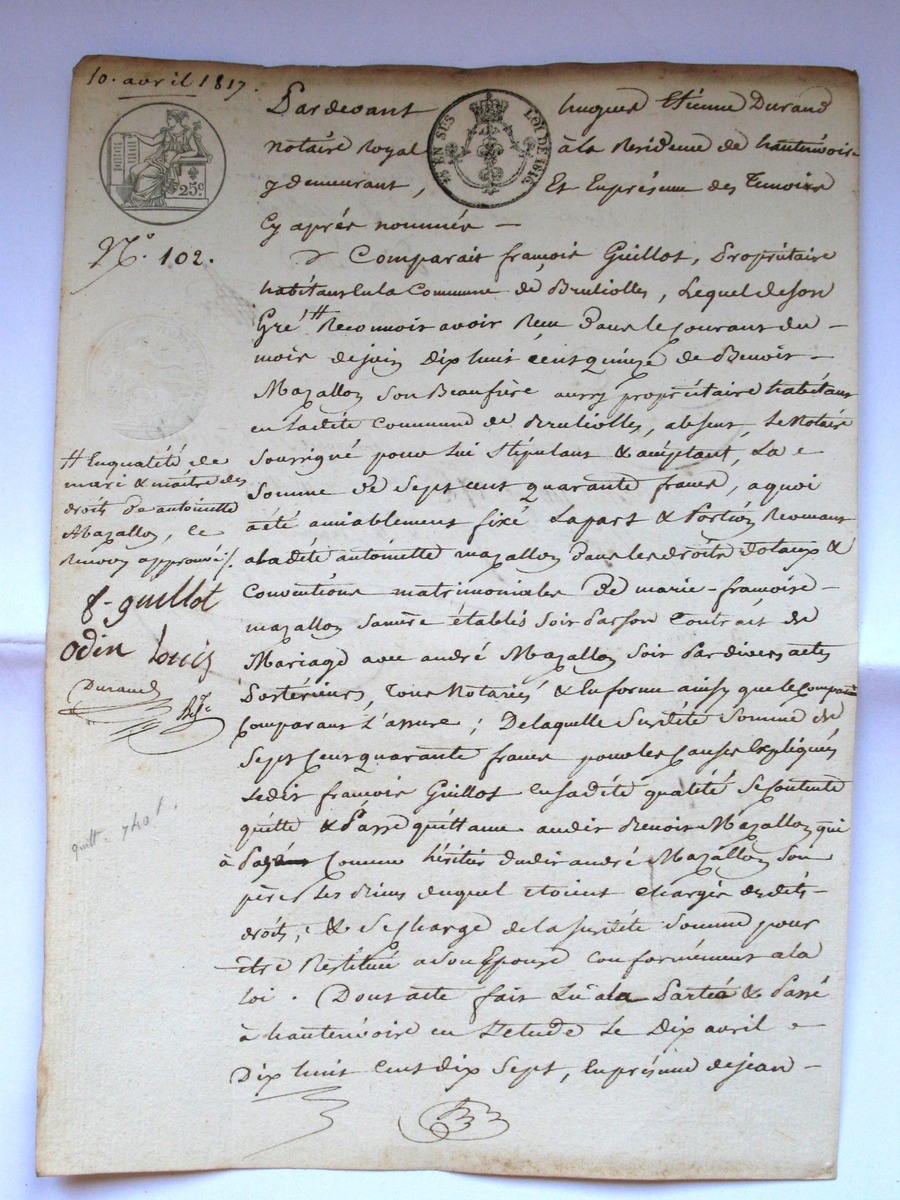 10. avril 1817.
Pardevant hugues Etienne Durand
notaire Royal à la Residence de hauterivoire
y demeurant, Et En présence des Temoins
Cy après nommés —
Comparait françois Guillot, Propriétaire
habitant En la Commune de Brulliolles, Lequel de son
Gré # Reconnoit avoir Reçu Dans le Courant du –
mois de juin Dix huit cent quinze de Benoit –
Mazallon son Beaufrère aussy propriétaire habitant
en Ladite Commune de Brulliolles, absent, Le Notaire
soussigné pour Lui Stipulant & acceptant, La
Somme de Sept cent quarante francs, a quoi
a été amiablement fixé La part & Portion Revenant
a ladite antoinette mazallon dans les droits dotaux &
Conventions matrimoniales De marie-françoise –
mazallon sa mère établis soit Par son Contrat de
Mariage avec andré Mazallon soit Par divers actes
Postérieurs, Tous Notariés & En forme ainsy que le
Comparant L'assure ; De laquelle Susdite Somme de
Sept Cent quarante francs pour les Causes Expliquées
Ledit françois Guillot en sadite qualité se Contente
quitte & Passe quittance audit Benoit Mazallon qui
à Payé Comme héritier dudit andré Mazallon son
père Les Biens duquel étoient Chargés desdits –
droits, & Se Charge de la Susdite Somme pour
être Restituée a son Epouse Conformément a la
loi. Dont acte fait Lu à la Partie & Passé
à hauterivoire en L'etude Le Dix avril
Dix huit Cent dix Sept, En présence de jean –
25 EN SUS
LOI DE 1816.
25c
N.° 102.
# En qualité de
mari & maître des
droits de antoinette
Mazallon, le
Renvoy approuvé /.
f. guillot
odin louis
Durand
quitt. 740 f.